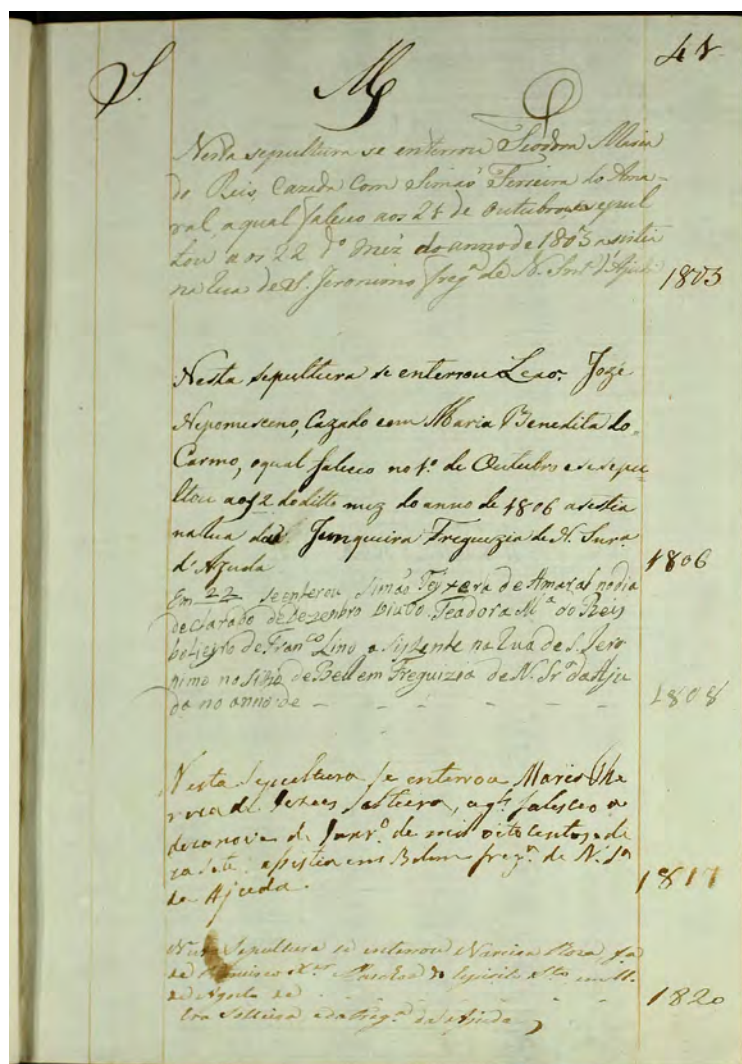 S. M 41
Nesta sepultura se enterrou Teodora Maria
do Reis, Cazada Com Simaõ Ferreira do Ama-
ral, aqual faleceo aos 21 de Outubro sepul
tou aos 22 do mez do anno de 1803 asistia
na Rua de S. Jeronimo freg.ª de N. Snr.ª d'Ajuda
1803
Nesta sepultura se enterrou Jozé
Nepomuceno, Cazado com Maria Benedita do
Carmo, oqual faleceo no 1º. de Outubro e se sepu-
ltou aos 2 do ditto mez do anno de 1806 asestia
na Rua da Junqueira Freguezia de N. Snra.
d'Azuda
1806
Em 22 se enterou Simaõ Teyxera de Amaral no dia
declarado de Dezenbro Viuvo Teadora M.ª do Reis
bolieyro de Fran.co Lino asistente na Rua de S. Jero
nimo no Sitio de Bellem Freguizia de N. Sr.ª da Aju
da no anno de - - - - -
1808
Nesta Sepultura se enterrou Maria
de solteira, a q.l faleseo a
dezanove de Janr.º de mil oito centos e de
zasete, asistia em Belem freg.ª de N. Sr.ª
da Ajuda.
1817
Nesta Sepultura se enterrou Narciza Roza, f.ª
de Francisco X.er
de Agosto de - - - - -
Era Solteira e da Freg.ª da Ajuda
1820